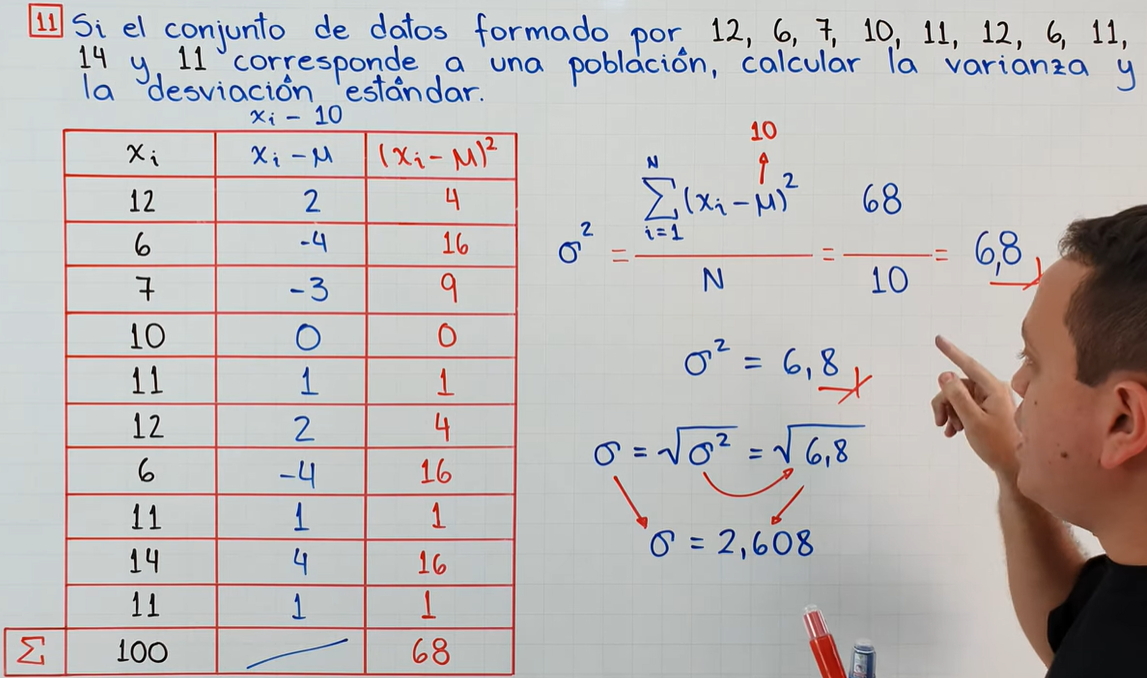 11 Si el conjunto de datos formado por 12, 6, 7, 10, 11, 12, 6, 11,
14 y 11 corresponde a una población, calcular la varianza y
la desviación estándar.
xᵢ - 10
xᵢ xᵢ - μ (xᵢ - μ)²
12 2 4
6 -4 16
7 -3 9
10 0 0
11 1 1
12 2 4
6 -4 16
11 1 1
14 4 16
11 1 1
Σ 100 68
10
σ² = \frac{\sum_{i=1}^{N} (xᵢ - μ)²}{N} = \frac{68}{10} = 6,8
σ² = 6,8
σ = √σ² = √6,8
σ = 2,608